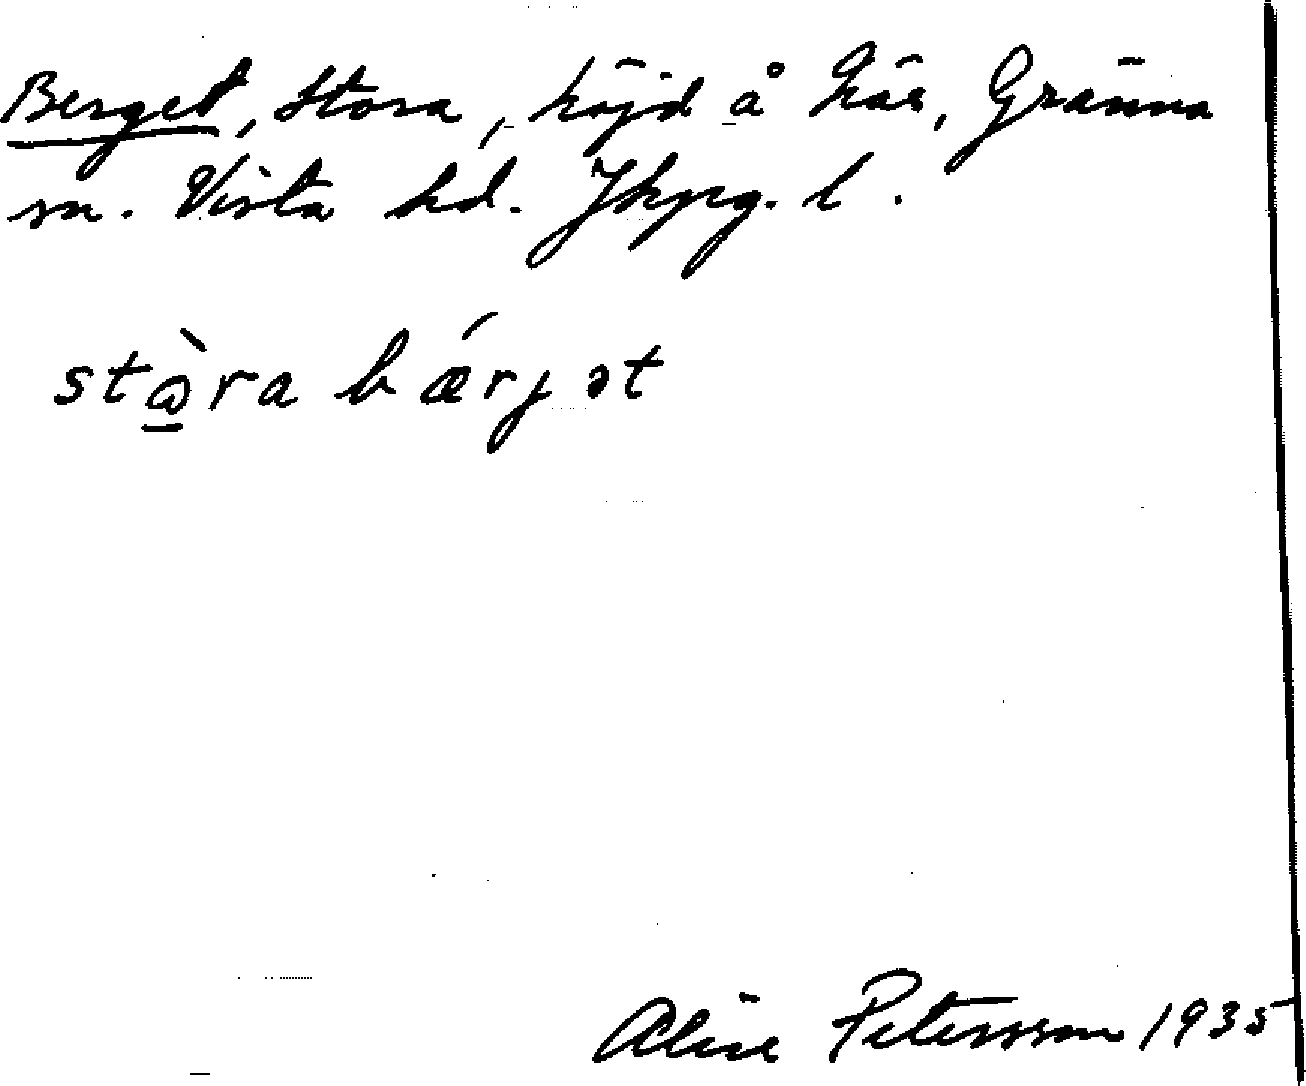 Berget, Stora, höjd å Näs, Gränna
sn. Vista hd. Jkpg. l.
stὼra bǽrjət
Alice Petersson 1935